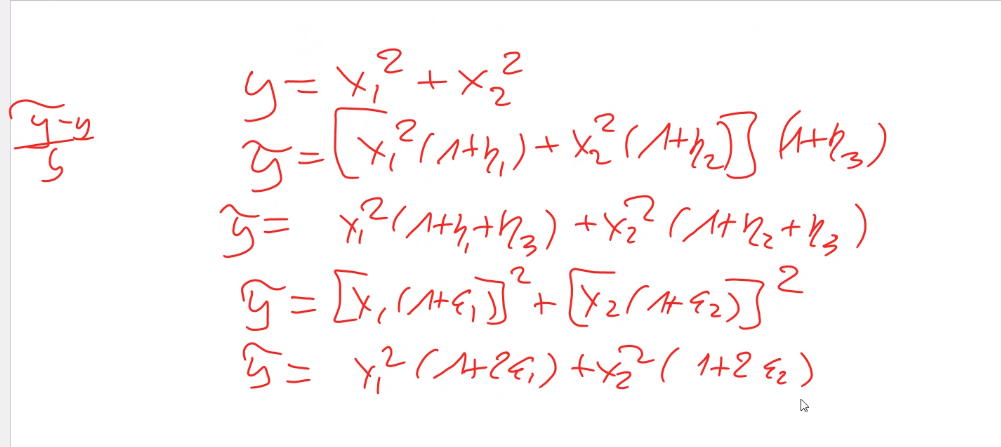 y = x₁² + x₂²
(ỹ-y)/y
ỹ = [x₁²(1+η₁) + x₂²(1+η₂)] (1+η₃)
ỹ = x₁²(1+η₁+η₃) + x₂²(1+η₂+η₃)
ỹ = [x₁(1+ε₁)]² + [x₂(1+ε₂)]²
ỹ = x₁²(1+2ε₁) + x₂²(1+2ε₂)